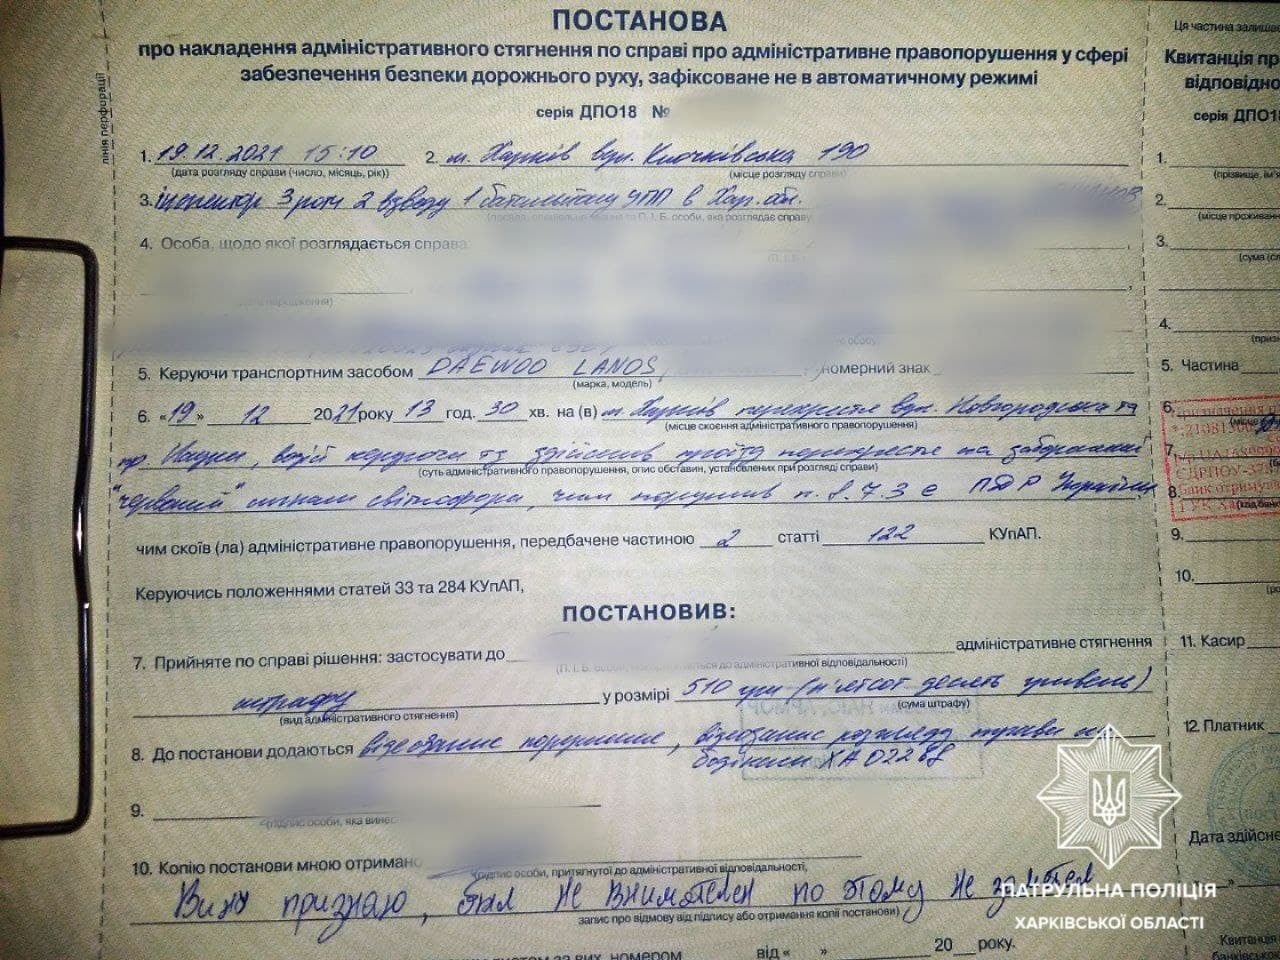 ПОСТАНОВА
про накладення адміністративного стягнення по справі про адміністративне правопорушення у сфері
забезпечення безпеки дорожнього руху, зафіксоване не в автоматичному режимі
серія ДПО18 №
лінія перфорації
1. 19.12.2021 15:10 2. м. Харків вул. Клочківська 190
(дата розгляду справи (число, місяць, рік)) (місце розгляду справи)
3. інспектор 3 роти 2 взводу 1 батальйону УПП в Хар. обл.
П.І.Б. особи, яка розглядає справу
4. Особа, щодо якої розглядається справа
5. Керуючи транспортним засобом DAEWOO LANOS номерний знак
(марка, модель)
6. «19» 12 2021 року 13 год. 30 хв. на (в) м. Харків перехрестя вул. Новгородська та
(місце скоєння адміністративного правопорушення)
пр Науки, водій керуючи тз здійснив проїзд перехрестя на заборонений
(суть адміністративного правопорушення, опис обставин, установлених при розгляді справи)
"червоний" сигнал світлофора, чим порушив п. 8.7.3 е ПДР України
чим скоїв (ла) адміністративне правопорушення, передбачене частиною 2 статті 122 КУпАП.
Керуючись положеннями статей 33 та 284 КУпАП,
ПОСТАНОВИВ:
7. Прийняте по справі рішення: застосувати до адміністративне стягнення
до адміністративної відповідальності)
штрафу у розмірі 510 грн (п'ятсот десять гривень)
(вид адміністративного стягнення) (сума штрафу)
8. До постанови додаються відеозапис порушення, відеозапис розгляду справи
ХА 02288
9.
(підпис особи, яка винес
10. Копію постанови мною отримано
(підпис особи, притягнутої до адміністративної відповідальності,
Вину признаю, был не внимателен по этому не заметел
запис про відмову від підпису або отримання копії постанови)
від « » 20 року.
Ця частина залишає
Квитанція пр
відповідно
серія ДПО18
1.
(прізвище, ім'я
2.
(місце проживан
3.
(сума (сл
4.
5. Частина
6.
7.
8.
9.
10.
11. Касир
12. Платник
Дата здійсне
ПАТРУЛЬНА ПОЛІЦІЯ
ХАРКІВСЬКОЇ ОБЛАСТІ